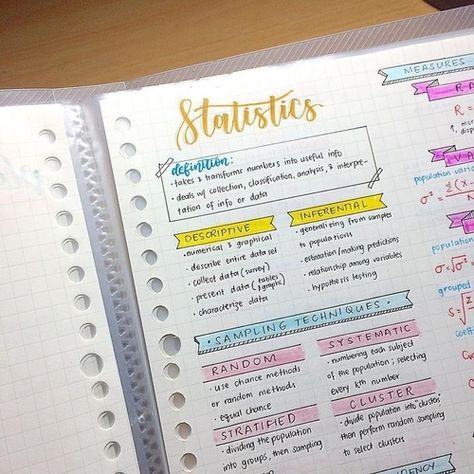 Statistics
definition:
• takes & transforms numbers into useful info
• deals w/ collection, classification, analysis, & interpre-
tation of info or data
DESCRIPTIVE
• numerical & graphical
• describe entire data set
• collect data (survey)
• present data (tables & graphs)
• characterize data
INFERENTIAL
• generalizing from samples
to populations
• estimation/making predictions
• relationship among variables
• hypothesis testing
• SAMPLING TECHNIQUES •
RANDOM
• use chance methods
or random methods
• equal chance
STRATIFIED
• dividing the population
into groups, then sampling
SYSTEMATIC
• numbering each subject
of the population ; selecting
every kth number
CLUSTER
• divide population into "clusters"
then perform random sampling
to select clusters
MEASURES
RA
R =
VA
population varia
σ² =
population
σ = √σ²
grouped
S =
coeffi